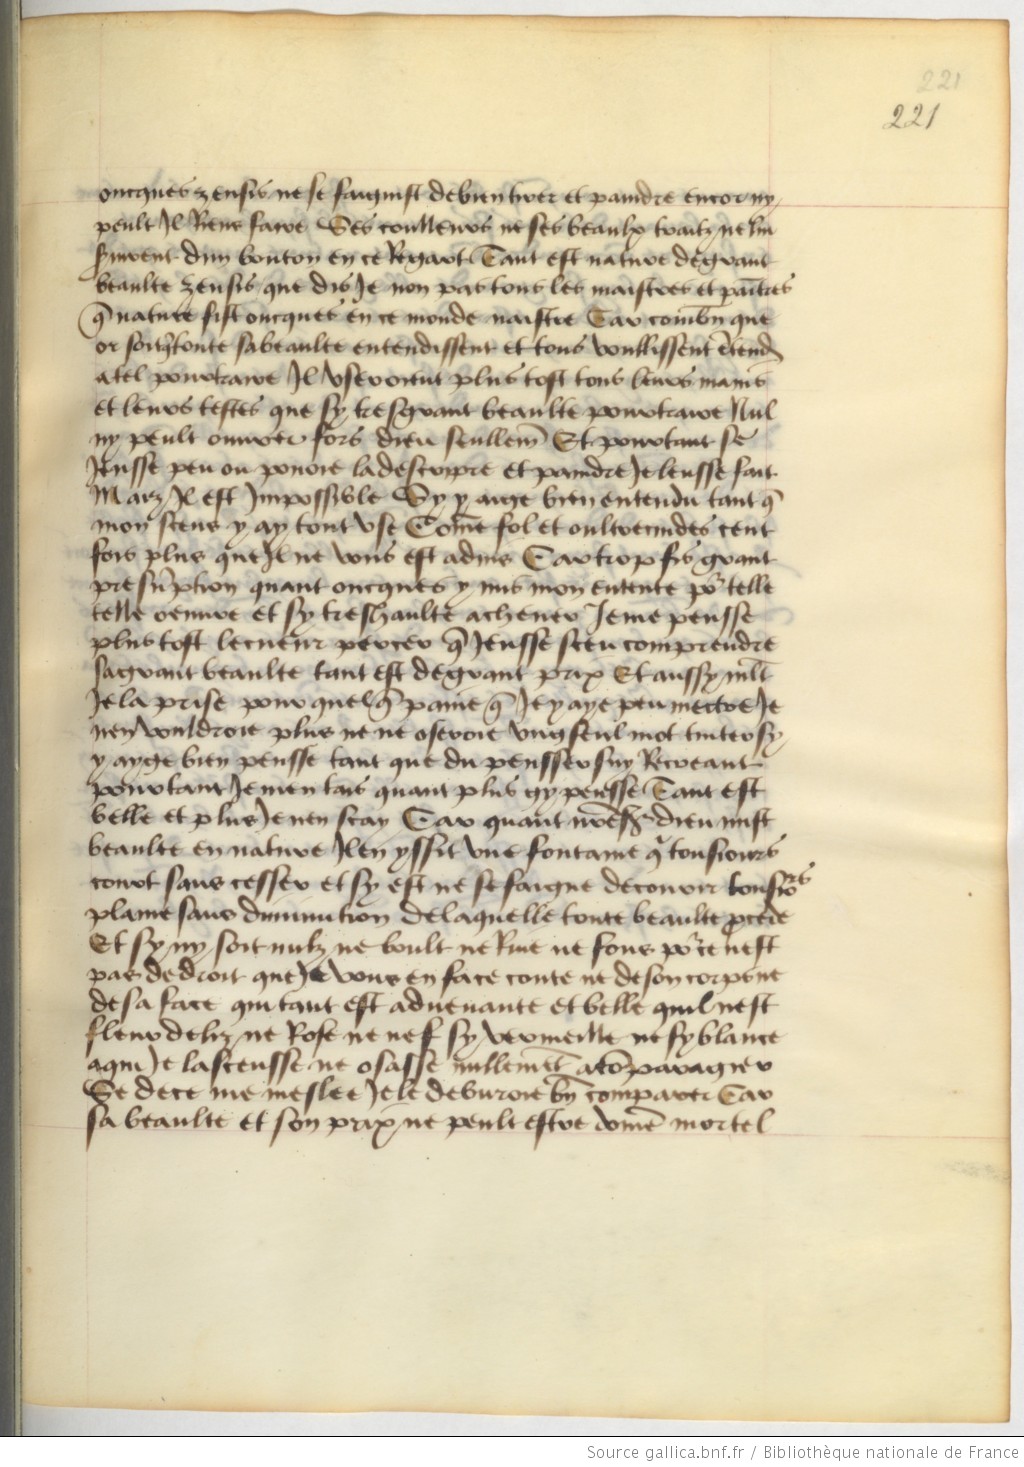 221
221
oncques zensis ne se faignist debien tirer et paindre encor ny
peult Il Riens faire Ses coulleurs ne ses beaulx traitz ne luy
seruirent dun bouton en ce Regart Tant est nature de grant
beaulte zensis que dis Je non pas tous les maistres et paītres
q̄ nature fist oncques en ce monde naistre Car combn̄ que
or soit q̄ toute sa beaulte entendissent et tous voulsissent ētendr̄
a tel pourtraire Il vseroient plus tost tous leurs mains
et leurs testes que sy tresgrant beaulte pourtraire Nul
ny peult ouurer fors dieu seullem̄ Et pourtant se
Jeusse peu ou pouoie la descripre et paindre Je leusse fait
Maiz Il est Impossible Sy y aige bien entendu tant q̄
mon scens y ay tout vse Com̄e fol et oultrecuides cent
fois plus que Il ne vous est aduis Car trop fis grant
presūption quant oncques y mis mon entente po^r telle
telle oeuure et sy treshaulte acheuer Je me pensse
plus tost le cueur percer q̄ Jeusse sceu comprendre
sa grant beaulte tant est de grant prix Et aussy mlt̄
Je la prise pour quelq̄ paine q̄ Je y aye peu mectre Je
nen vouldroie plus ne ne oseroie vng seul mot tinter sy
y ayge bien pensse tant que du pensser suy Recreant
pourtant Je men tais quant plus gy pensse Tant est
belle et plus Je nen scay Car quant nr̄e sr̄ dieu mist
beaulte en nature Il en yssit vne fontaine q̄ tousiours
court sans cesser et sy est ne se faigne de courir tousio^rs
plaine sans diminution de laquelle toute beaulte procede
Et sy ny soit nulz ne boult ne Riue ne fons po^r ce nest
pas de droit que Je vous en face conte ne de son corps ne
de sa face qui tant est aduenante et belle quil nest
fleur de liz ne Rose ne nef sy vermeille ne sy blance
a qui Je la sceusse ne osasse nullemēt a cōparagier
Se de ce me meslee Je le deburoie bn̄ comparer Car
sa beaulte et son prix ne peult estre dom̄e mortel
Source gallica.bnf.fr / Bibliothèque nationale de France